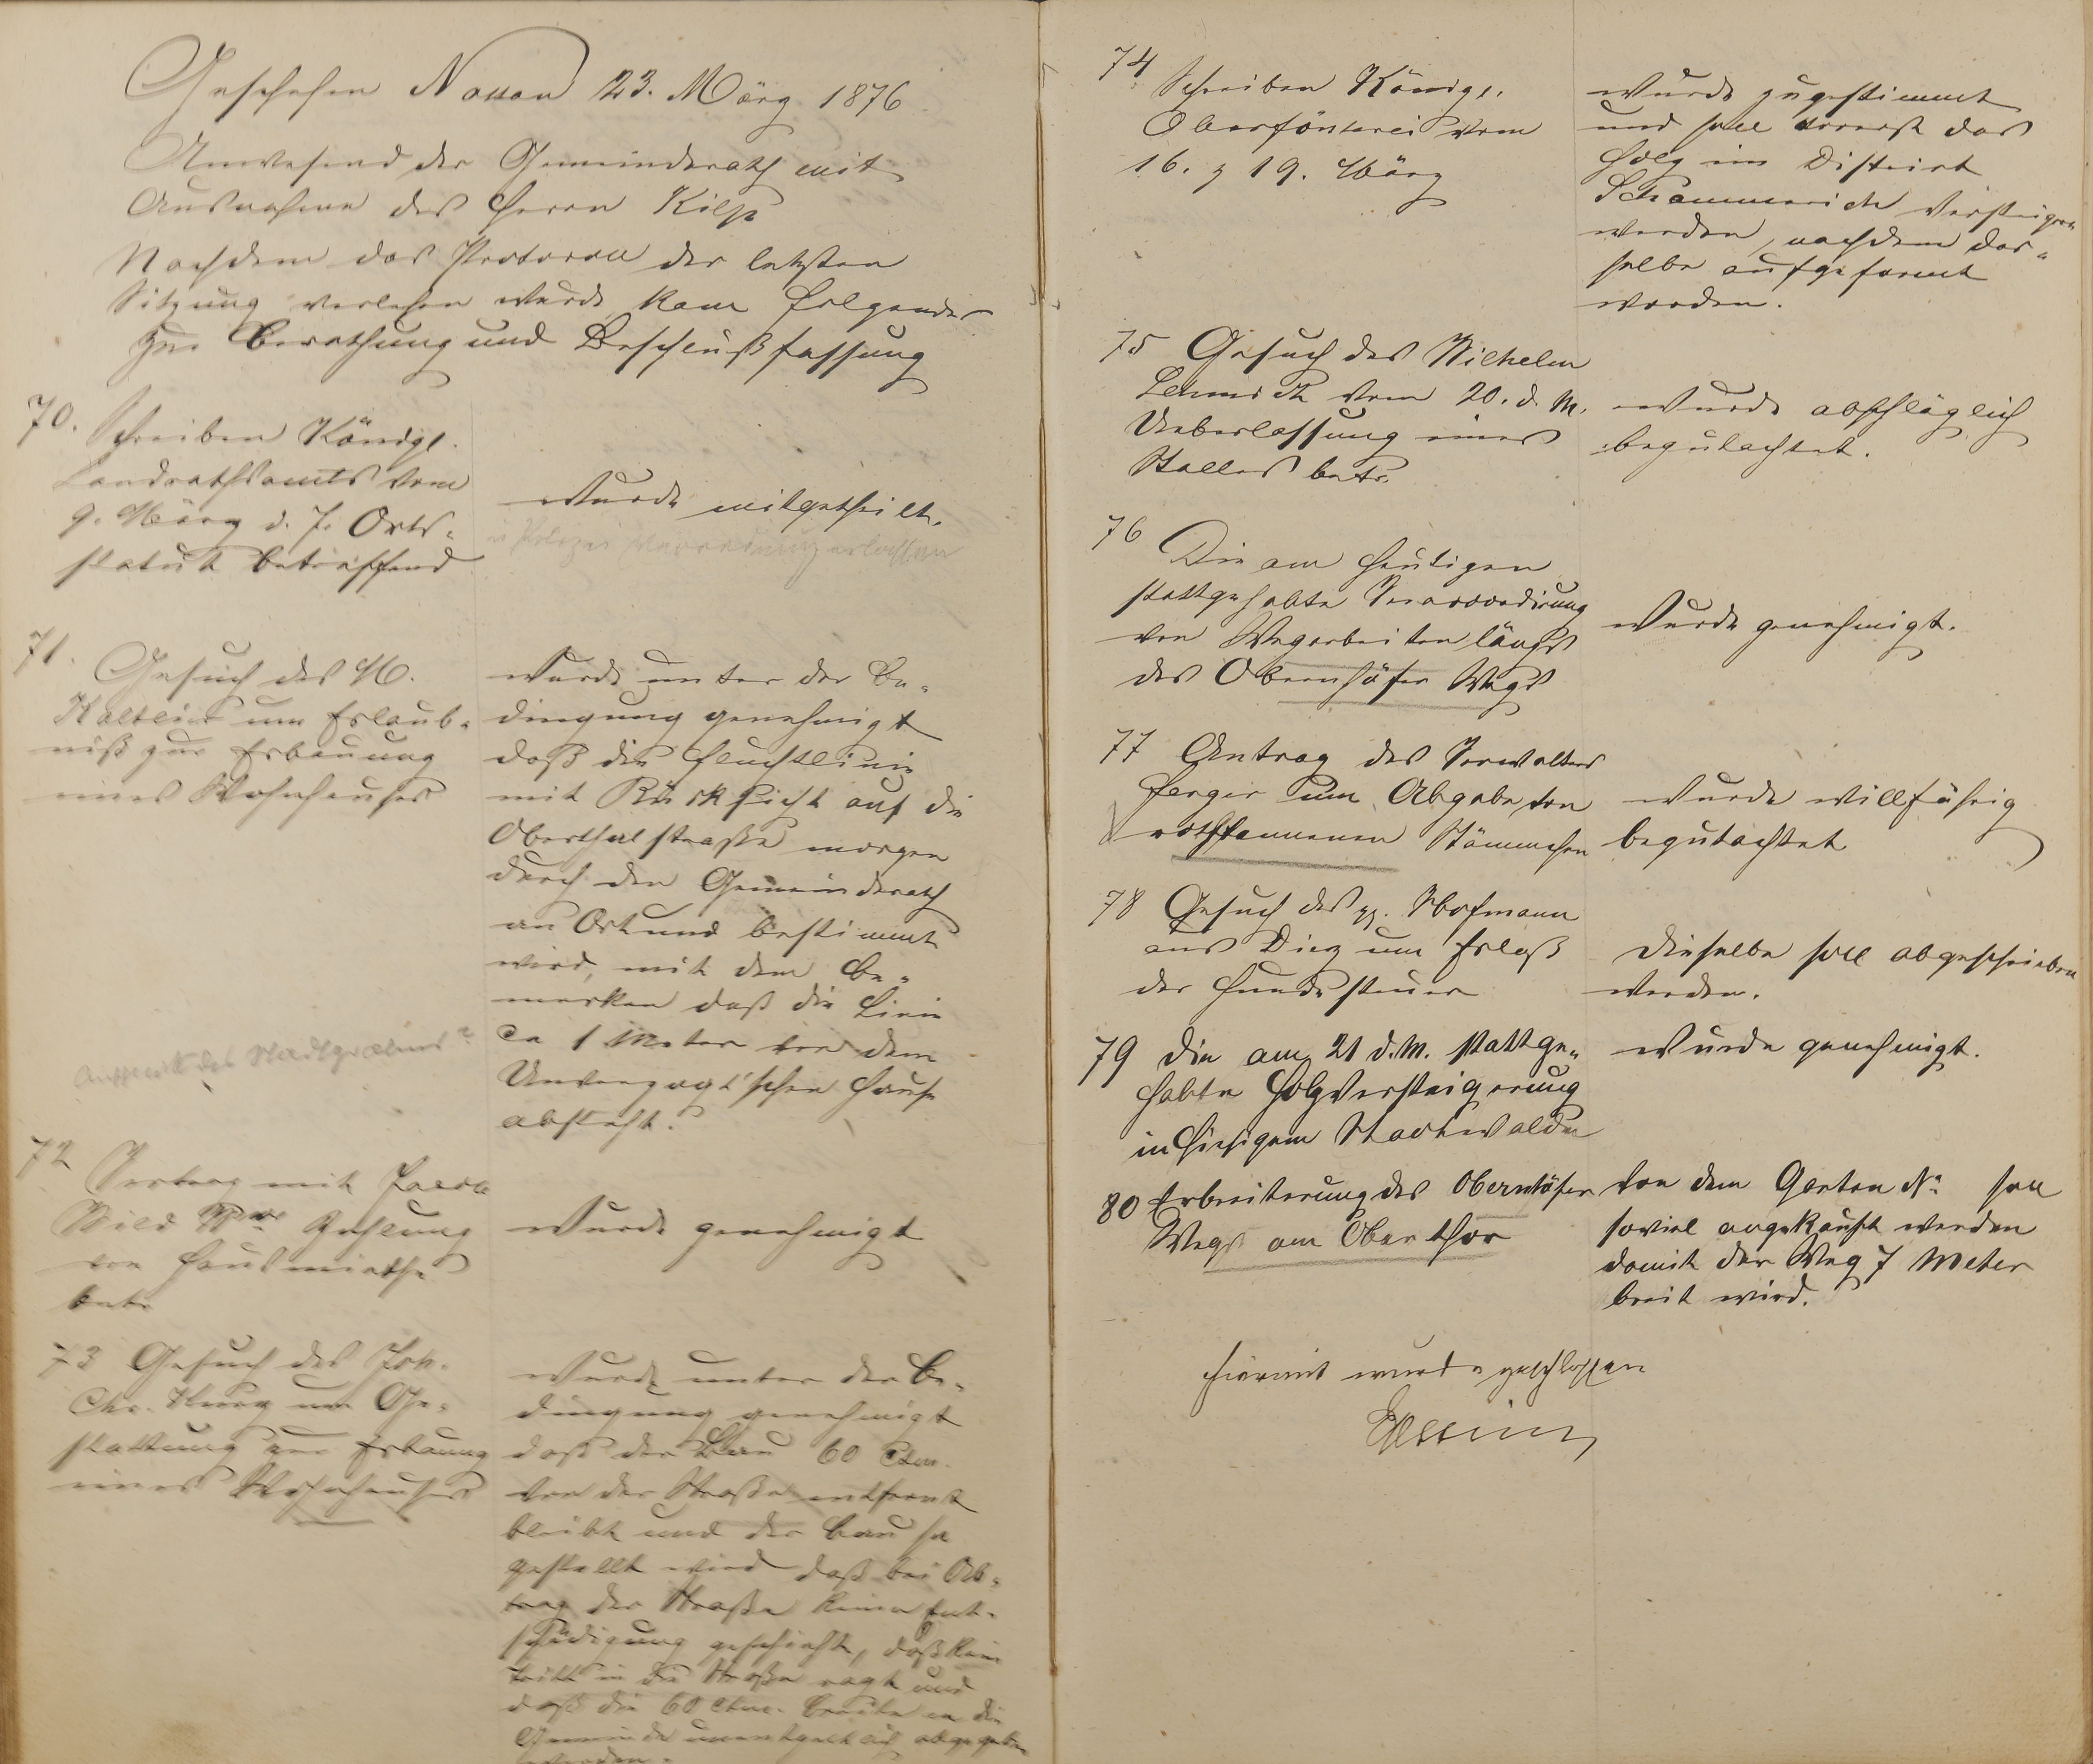 Geschehen Nassau 23. März 1876
Anwesend der Gemeinderath mit
Ausnahme des Herrn Kilp
Nachdem das Protocoll der letzten
Sitzung verlesen wurde kam folgendes
zur Berathung und Beschlußfassung
70. Schreiben Königl.
Landrathsamts vom
9. März d. J. Orts-
statut betreffend
wurde mitgetheilt.
Polizei Verordnung erlassen
71. Gesuch des
um Erlaub-
niß zur Erbauung
eines Wohnhauses
wurde unter der Be-
dingung genehmigt
daß die Fluchtlinie
mit Rücksicht auf die
Oberthalstraße morgen
durch den Gemeinderath
an Ort und bestimmt
wird, mit dem Be-
merken daß die Linie
ca 1 Meter von dem
Unverzagt'schen Hause
absteht.
des Stadtgrabens?
72 Vertrag mit Jacob
Wild Wwe Zahlung
von Hausmiethe
betr.
wurde genehmigt
73 Gesuch des Joh.
Chr. Kurz um Ge-
stattung zur Erbauung
eines Wohnhauses
wurde unter der Be-
dingung genehmigt
daß der Bau 60 Ctm.
von der Straße entfernt
bleibt und der Bau so
gestellt wird daß bei Ab-
trag der Straße keine Ent-
schädigung geschieht, daß kein
Tritt in die Straße ragt und
daß die 60 Ctm. Breite an die
Gemeinde unentgeltlich abgegeben
werden.
74 Schreiben Königl.
Oberförsterei vom
16. & 19. März
wurde zugestimmt
und soll vorerst das
Holz im Distrikt
Schammerich versteigert
werden, nachdem das-
selbe aufgeformt
worden.
75 Gesuch des Wilhelm
vom 20. d. M.
Ueberlassung eines
Stalles betr.
wurde abschläglich
begutachtet.
76 Die am heutigen
stattgehabte Veraccordirung
von Wegarbeiten längs
des Obernhöfer Wegs
wurde genehmigt.
77 Antrag des Verwalters
um Abgabe von
rothtannenen Stämmchen
wurde willfährig
begutachtet
78 Gesuch des pp. Hofmann
aus Diez um Erlaß
der Hundesteuer
Dieselbe soll abgeschrieben
werden.
79 die am 21 d. M. stattge-
habte Holzversteigerung
in hiesigem Stadtwalde
wurde genehmigt.
80 Erbreiterung des Obernhöfer
Wegs am Oberthor
von dem Garten No soll
soviel angekauft werden
damit der Weg 7 Meter
breit wird.
Hiermit wurde geschlossen